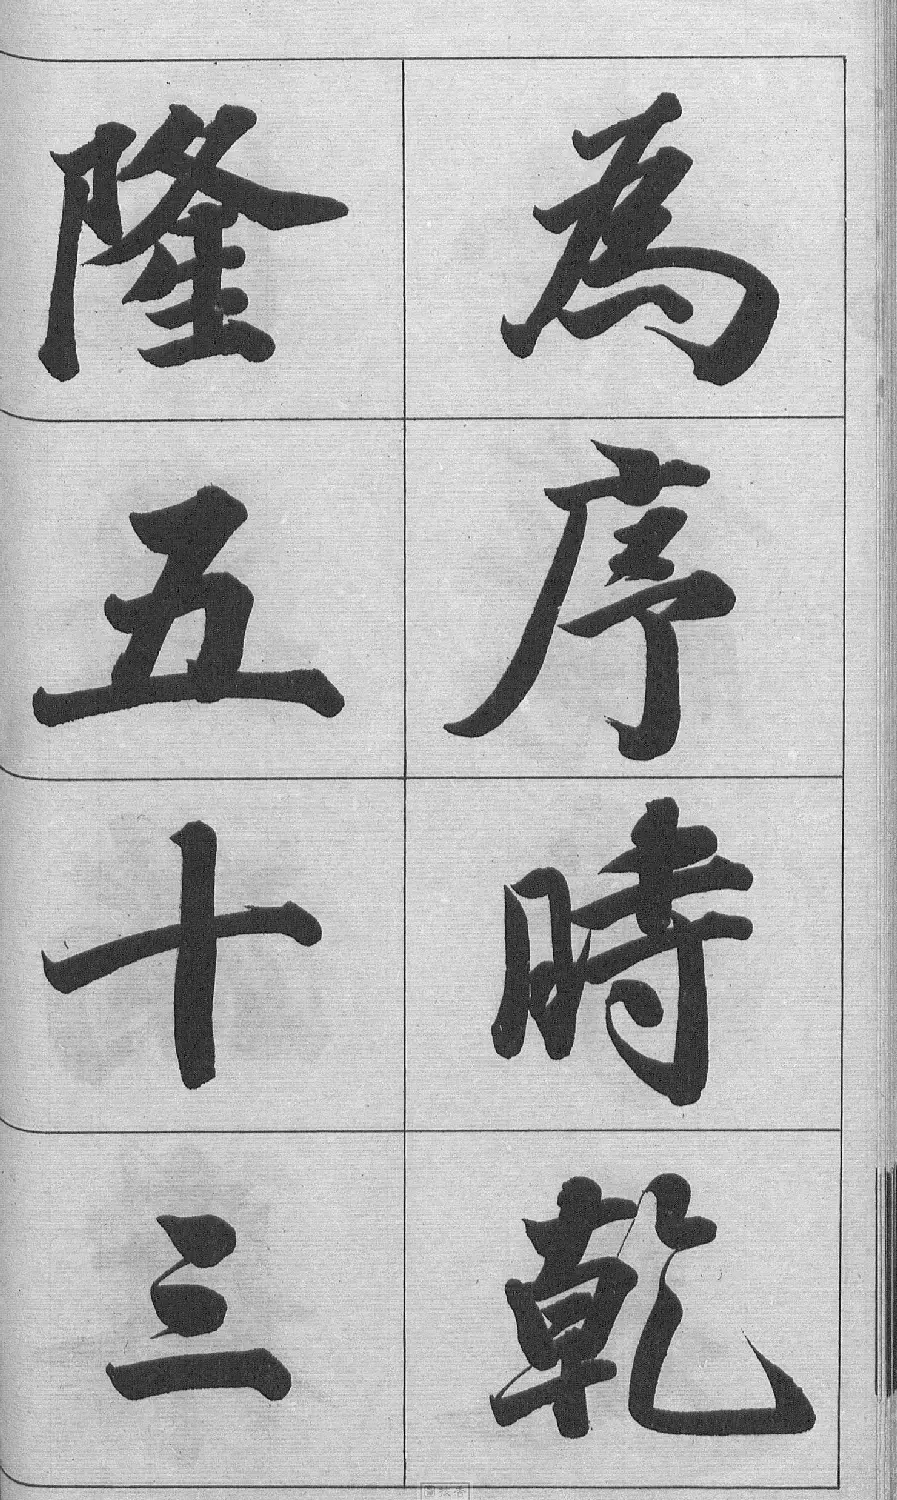 為序時乾
隆五十三